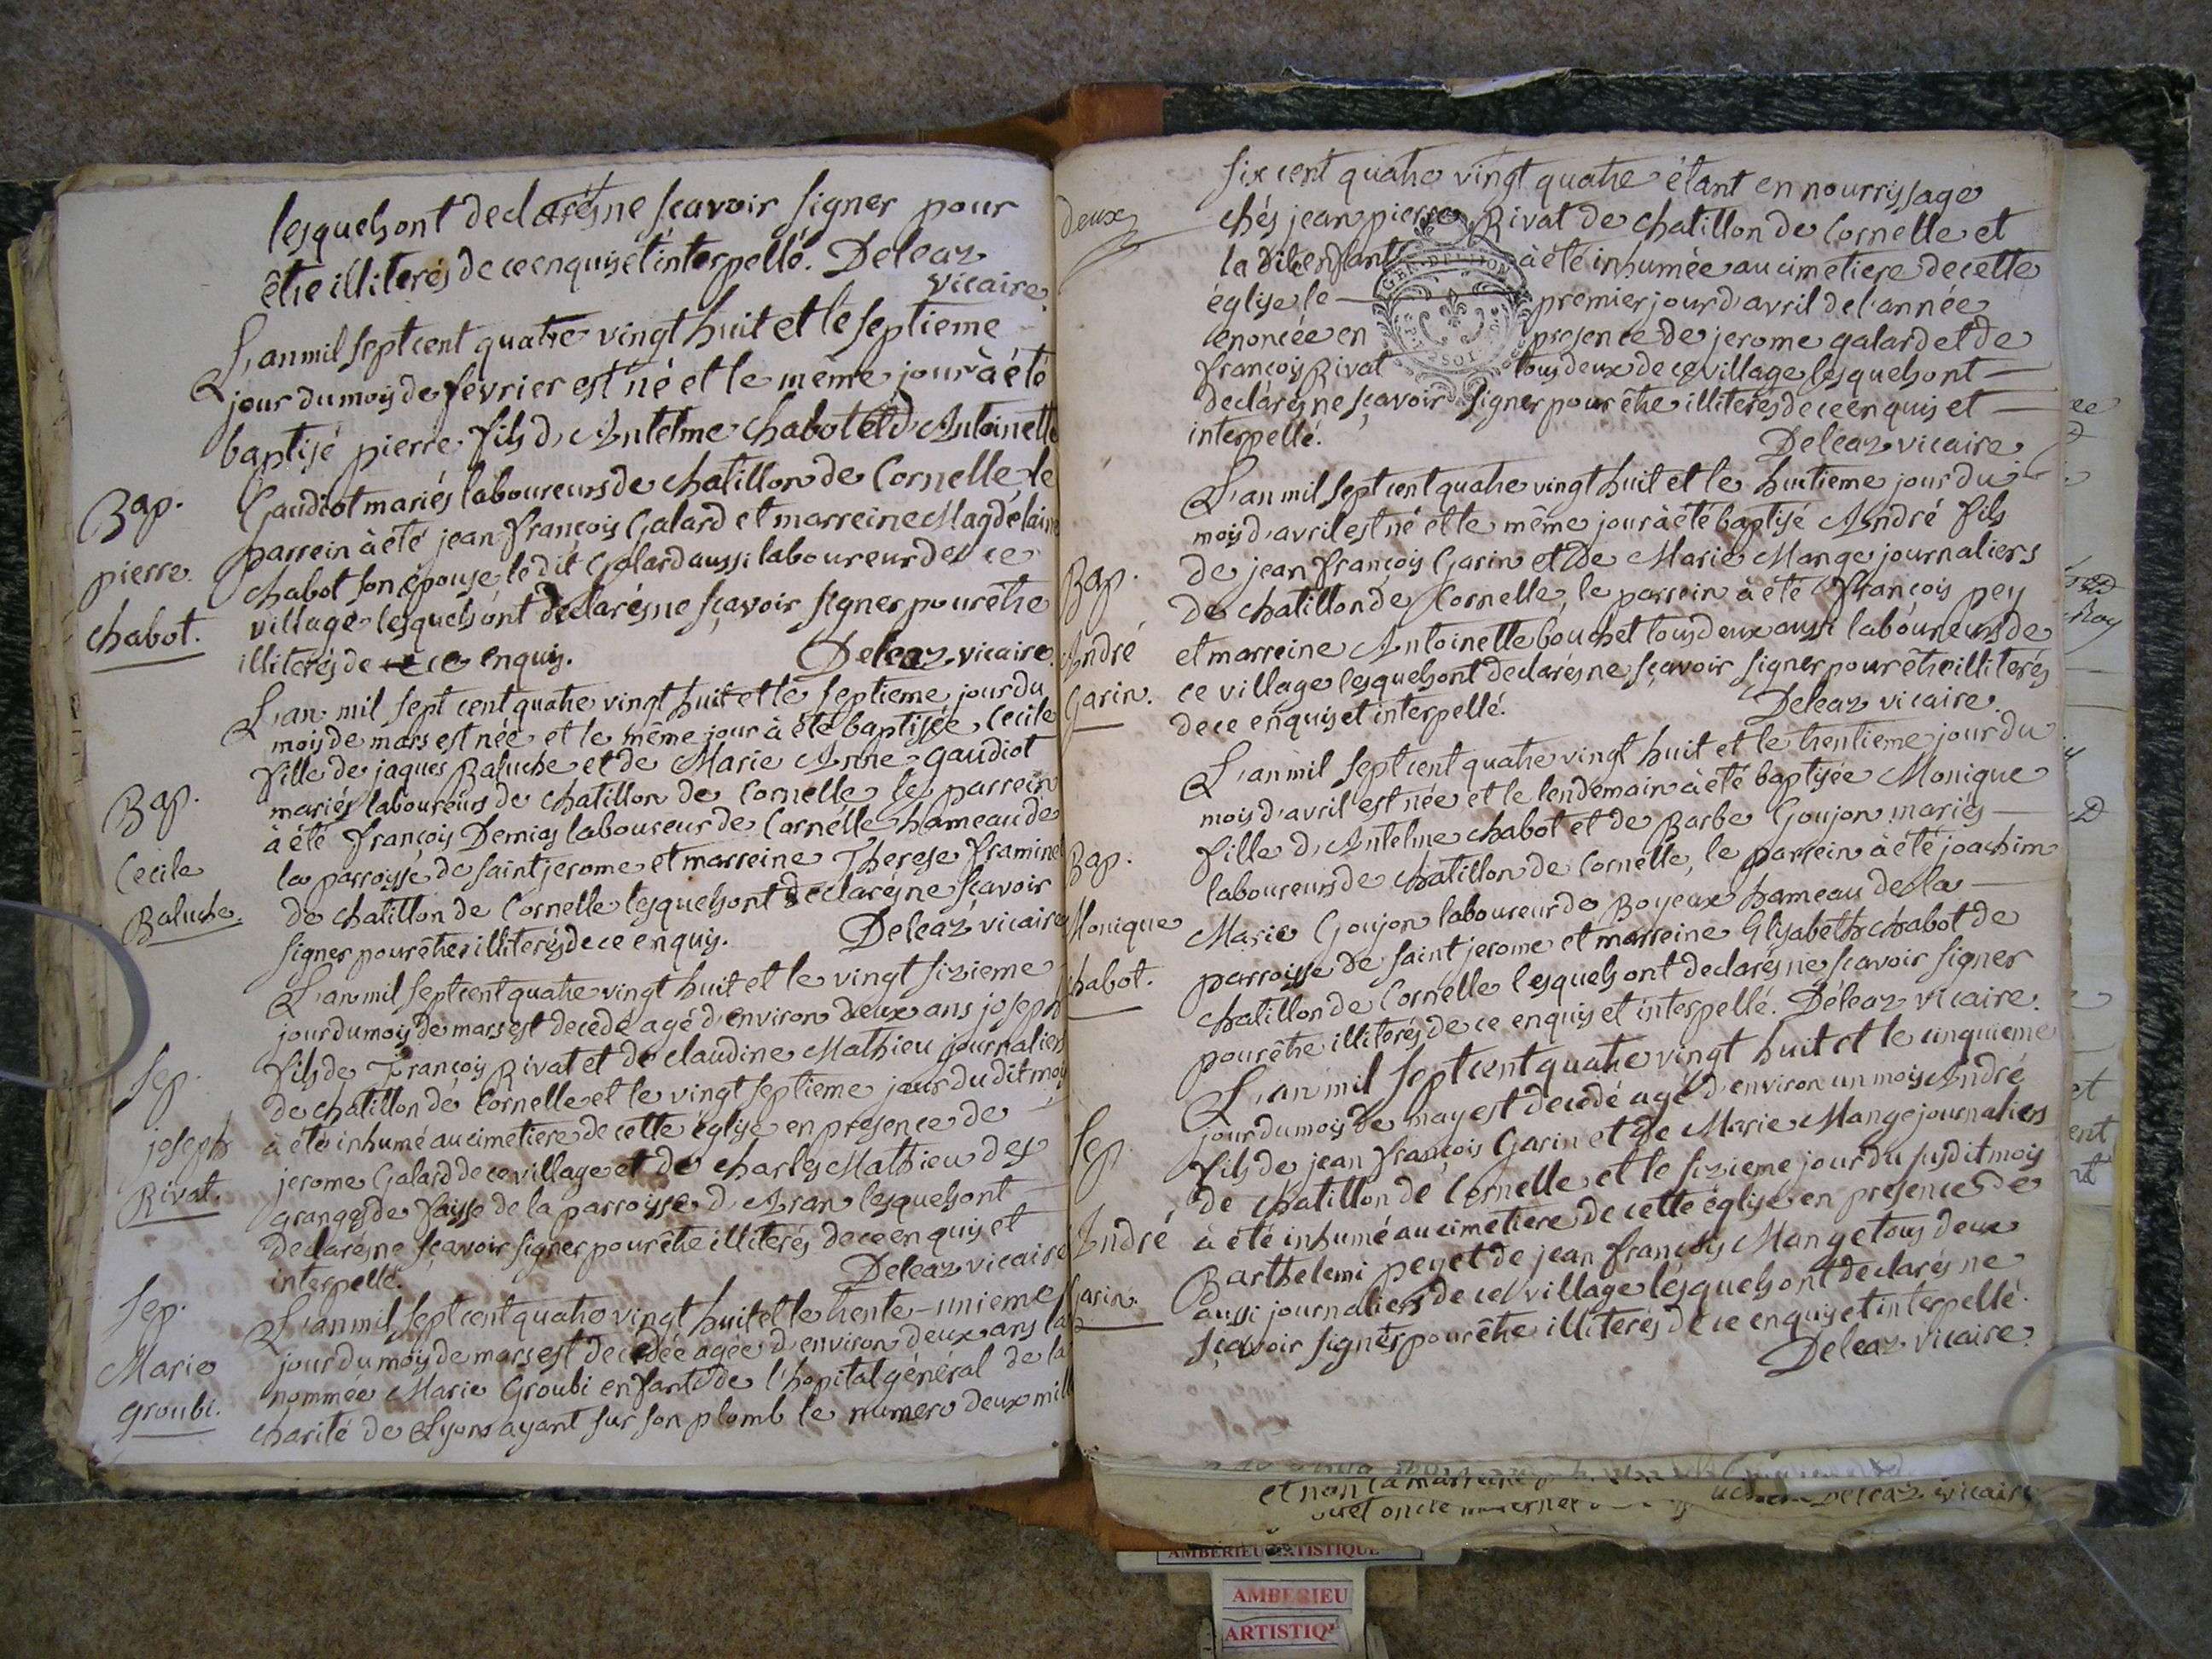 lesquels ont declarés ne sçavoir signer pour
être illiterés de ce enquis et interpellé. Deleaz
vicaire
L'an mil sept cent quatre vingt huit et le septieme
jour du mois de fevrier est né et le même jour à été
baptisé pierre fils d'Antelme chabot et d'Antoinette
Bap.
pierre
chabot.
Gaudiot mariés laboureurs de chatillon de Cornelle le
parrein à été jean françois Galard et marreine Magdelaine
chabot son épouse le dit Galard aussi laboureur de ce
village lesquels ont declarés ne sçavoir signer pour être
illiterés de ce enquis. Deleaz vicaire
L'an mil sept cent quatre vingt huit et le septieme jour du
mois de mars est née et le même jour à été baptisée Cecile
fille de jaques Baluche et de Marie Anne gaudiot
Bap.
Cecile
Baluche.
mariés laboureurs de chatillon de Cornelle le parrein
à été françois Demias laboureur de Cornelle hameau de
la parroisse de saint jerome et marreine Therese framinet
de chatillon de Cornelle lesquels ont declarés ne sçavoir
signer pour être illiterés de ce enquis. Deleaz vicaire
L'an mil sept cent quatre vingt huit et le vingt sizieme
jour du mois de mars est decedé agé d'environ deux ans joseph
Sep.
joseph
Rivat.
fils de François Rivat et de claudine Mathieu journaliers
de chatillon de Cornelle et le vingt septieme jour du dit mois
à été inhumé au cimetiere de cette église en presence de
jerome Galard de ce village et de charles Mathieu des
granges de faisse de la parroisse d'Aran lesquels ont
declarés ne sçavoir signer pour être illiterés de ce enquis et
interpellé. Deleaz vicaire
Sep.
Marie
groubi.
L'an mil sept cent quatre vingt huit et le trente-unieme
jour du mois de mars est decedée agée d'environ deux ans la
nommée Marie Groubi enfant de l'hopital général de la
charité de Lyon ayant sur son plomb le numero deux mill
deux
six cent quatre vingt quatre étant en nourrissage
chés jean pierre Rivat de chatillon de Cornelle et
la dite enfant à été inhumée au cimetiere de cette
église le premier jour d'avril de l'année
enoncée en presence de jerome galard et de
françois Rivat tous deux de ce village lesquels ont
declarés ne sçavoir signer pour être illiterés de ce enquis et
interpellé. Deleaz vicaire
L'an mil sept cent quatre vingt huit et le huitieme jour du
mois d'avril est né et le même jour à été baptisé André fils
Bap.
André
Garin.
de jean françois Garin et de Marie Mange journaliers
de chatillon de Cornelle, le parrein à été françois pey
et marreine Antoinette bouchet tous deux aussi laboureurs de
ce village lesquels ont declarés ne sçavoir signer pour être illiterés
de ce enquis et interpellé. Deleaz vicaire.
L'an mil sept cent quatre vingt huit et le trentieme jour du
mois d'avril est née et le lendemain à été baptisée Monique
Bap.
Monique
chabot.
fille d'Antelme chabot et de Barbe Goujon mariés
laboureurs de chatillon de Cornelle, le parrein à été joachim
Marie Goujon laboureur de Boyeux hameau de la
parroisse de saint jerome et marreine Elisabeth chabot de
chatillon de Cornelle lesquels ont declarés ne sçavoir signer
pour être illiterés de ce enquis et interpellé. Déleaz vicaire.
L'an mil sept cent quatre vingt huit et le cinquieme
jour du mois de may est decedé agé d'environ un mois André
Sep.
André
Garin.
fils de jean françois Garin et de Marie Mange journaliers
de chatillon de Cornelle et le sizieme jour du susdit mois
à été inhumé au cimetiere de cette église en presence de
Barthelemi pey et de jean françois Mange tous deux
aussi journaliers de ce village lesquels ont declarés ne
sçavoir signer pour être illiterés de ce enquis et interpellé.
Deleaz vicaire.
et non la marreine
Deleaz vicaire
AMBERIEU ARTISTIQUE
AMBERIEU
ARTISTIQ